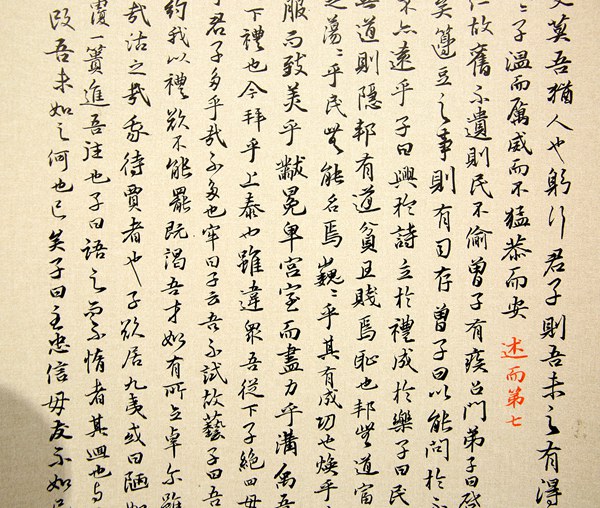 文莫吾猶人也躬行君子則吾未之有得
子溫而厲威而不猛恭而安 述而第七
仁故舊不遺則民不偷曾子有疾召門弟子曰啓
矣籩豆之事則有司存曾子曰以能問於不
不亦遠乎子曰興於詩立於禮成於樂子曰民
無道則隱邦有道貧且賤焉恥也邦無道富
之蕩〻乎民無能名焉巍〻乎其有成功也煥乎
服而致美乎黻冕卑宮室而盡力乎溝禹吾
下禮也今拜乎上泰也雖違眾吾從下子絕四毋
君子多乎哉不多也牢曰子云吾不試故藝子曰吾
約我以禮欲不能罷既竭吾才如有所立卓尔雖
哉沽之哉我待賈者也子欲居九夷或曰陋如
覆一簣進吾往也子曰語之而不惰者其囬也与
改吾末如之何也已矣子曰主忠信毋友不如